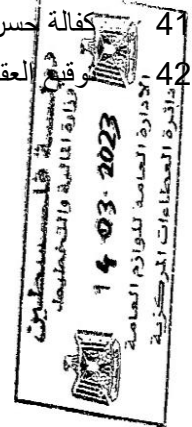 41 كفالة حسن
42 توقيع العقد
دولة فلسطين
وزارة المالية والتخطيط
14-03-2023
الادارة العامة للوازم العامة
دائرة العطاءات المركزية